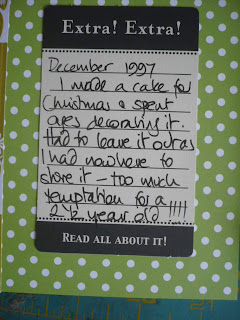 Extra! Extra!
December 1997
I made a cake for
Christmas & spent
ages decorating it.
Had to leave it out as
I had nowhere to
store it – too much
temptation for a !!!!
2½ year old
READ ALL ABOUT IT!